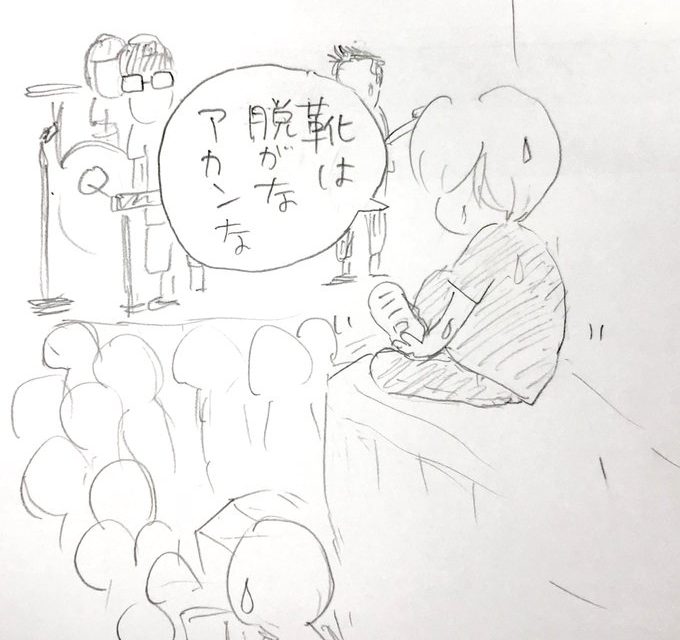 靴は
脱がな
アカンな